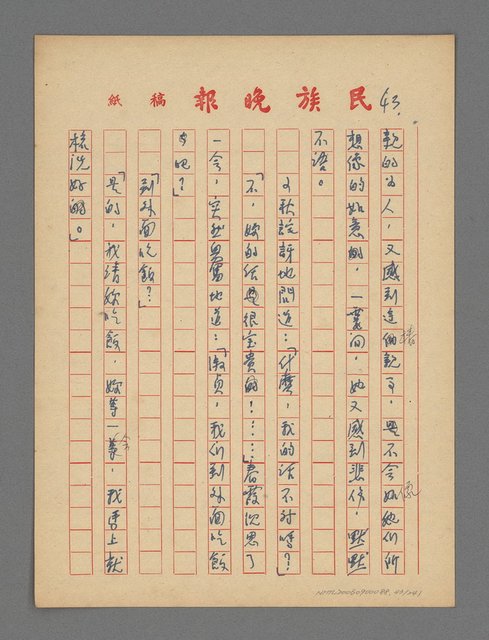 民族晚報 稿紙
43.
親的為人，又感到這個親事，是不會如她們所
想像的如意的，一霎間，她又感到悲傷，默默
不語。
又秋詫訝地問道：「什麼，我的話不对嗎？」
「不，妳的話是很宝貴的！……」春霞沉思了
一会，突然興奮地道：「淑貞，我们到外面吃飯
去吧？」
「到外面吃飯？」
「是的，我請妳吃飯，妳等一会，我馬上就
梳洗好的。」
NMTL20050900088, 43/241